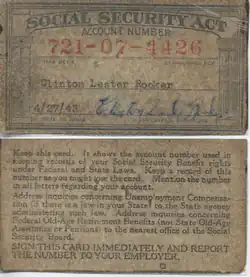 SOCIAL SECURITY ACT
ACCOUNT NUMBER
721-07-4426
Clinton Lester Rooker
4/27/43
Keep this card. It shows the account number used in
keeping records of your Social Security Benefit rights
under Federal and State Laws. Keep a record of this
number so you might lose the card. Mention the number
in all letters regarding your account.
Address inquiries concerning Unemployment Compensa-
tion (if there is a law in your State) to the State agency
administering such law. Address inquiries concerning
Federal Old-Age Retirement Benefits (not State Old-Age
Assistance or Pensions) to the nearest office of the Social
Security Board.
SIGN THIS CARD IMMEDIATELY AND REPORT
THE NUMBER TO YOUR EMPLOYER.